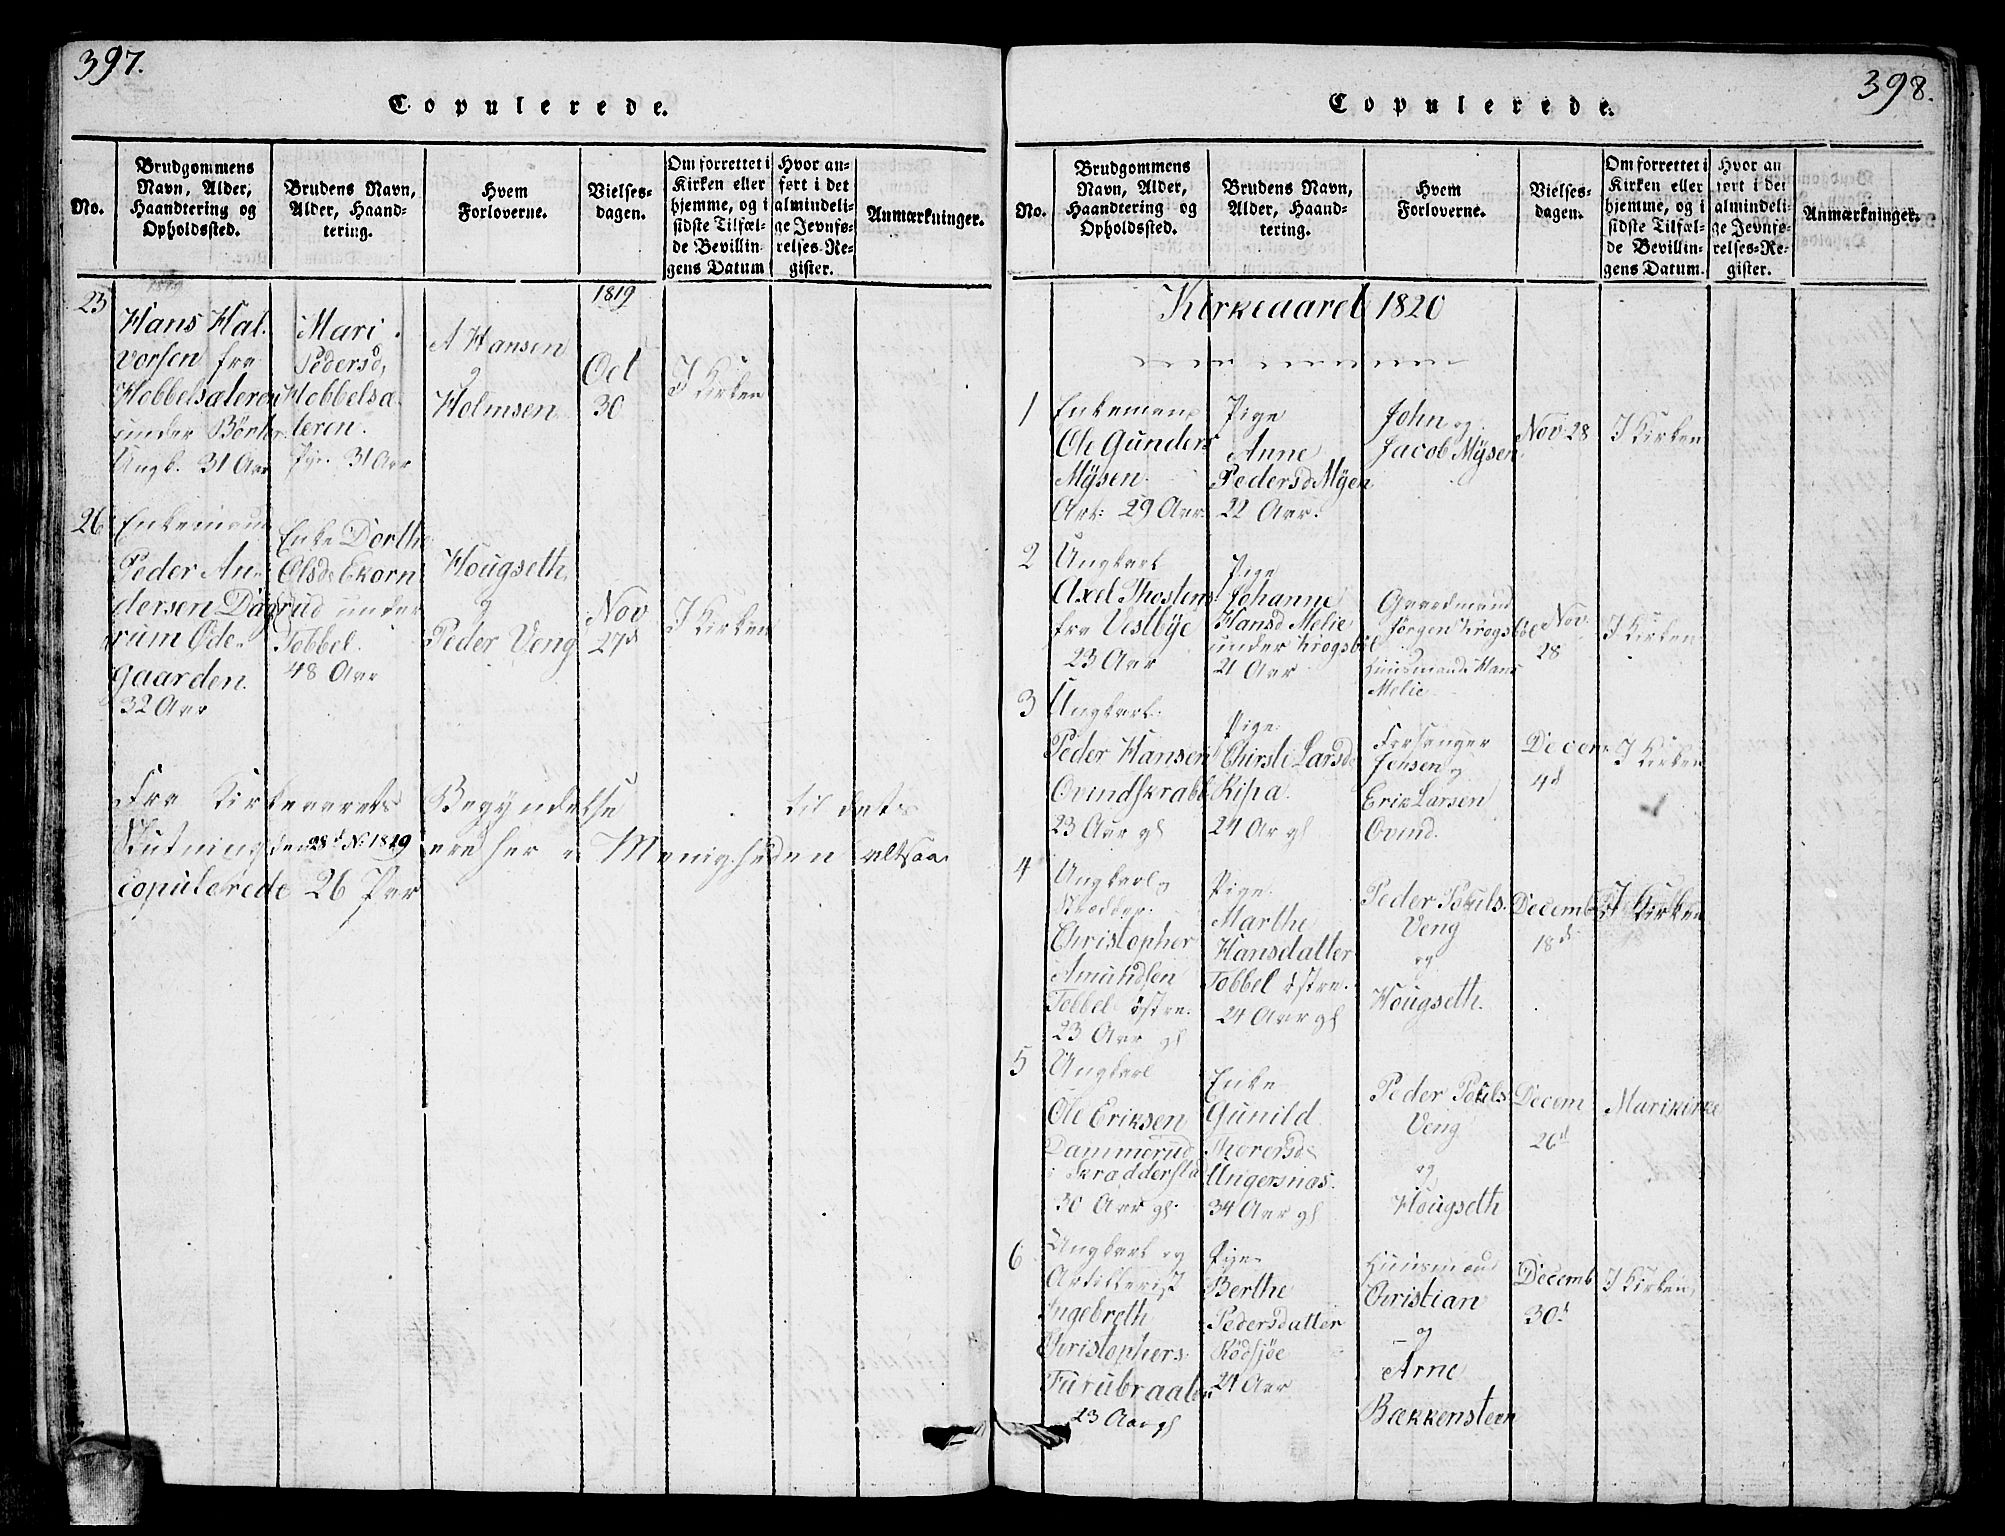 397.
Copulerede.
No.
Brudgommens
Navn, Alder,
Haandtering og
Opholdssted.
Brudens Navn,
Alder, Haand-
tering.
Hvem
Forloverne.
Vielses-
dagen.
Om forrettet i
Kirken eller
hjemme, og i
sidste Tilfæl-
de Bevillin-
gens Datum
Hvor an-
ført i det
almindeli-
ge Jevnfø-
relses-Re-
gister.
Anmærkninger.
1819
23
Hans Hal-
vorsen fra
Hobbelsateren
under Bönter
Ungk. 31 Aar
Mari
Pedersd,
Hobbelsa-
teren.
Pige. 31 Aar
A Hansen
og
Holmsen
Oct
30
I Kirken
26
Enkemand
Peder An-
dersen Dag
rum Öde-
gaarden.
32 Aar
Enke Dorthe
Olsd Ekorn
rud under
Tobbel.
48 Aar
Hougseth
og
Peder Veng
Nov
27d
I Kirken
Fra Kirkeaarets Begyndelse til dets
Slutning den 28d N. 1819 ere her i Menigheden altsaa
copulerede 26 Par
398.
Copulerede.
No.
Brudgommens
Navn, Alder,
Haandtering og
Opholdssted.
Brudens Navn,
Alder, Haand-
tering.
Hvem
Forloverne.
Vielses-
dagen.
Om forrettet i
Kirken eller
hjemme, og i
sidste Tilfæl-
de Bevillin-
gens Datum.
Hvor an
ført i det
almindeli-
ge Jevnfø-
relses-Re-
gister.
Anmærkninger.
Kirkeaaret 1820
1
Enkeman
Ole Gunders
Mÿsen
Art: 29 Aar.
Pige
Anne
Pedersd Mÿen
22 Aar.
John og
Jacob Mÿsen
Nov. 28
I Kirken
2
Ungkarl
Axel Thostens
fra Vestbÿe
23 Aar
Pige
Johanne
Hansd Melie
under Krogsböl
21 Aar
Gaardmand
Jörgen Krogsböl
Huusmand Hans
Melie
Nov.
28
I Kirken
3
Ungkarl
Peder Hansen
Ovindskrabb
23 Aar gl
Pige
Chirste Larsd
Kisa.
24 Ar gl
Forsanger
Jensen og
Erik Larsen
Ovind.
Decem
4d
I Kirken
4
Ungkarl og
Skredder
Christopher
Amundsen
Tobbel östre.
23 Aar gl
Pige
Marthe
Hansdatter
Tobbel östre.
24 Aar gl
Peder Pouls.
Veng
og
Hougseth.
Decemb
18d
I Kirken
5
Ungkarl
Ole Eriksen
Dammerud
Skraddersta
30 Aar gl.
Enke
Gunild
Thorersd
Ungersnas.
34 Aar gl
Peder Pouls
Veng
og
Hougseth
Decem
26d
Marikirke
6
Ungkarl og
Artillerist
Ingebreth
Christophers.
Furubraaten
23 Aar gl
Pige
Berthe
Pedersdatter
Rödsjöe
24 Aar
Huusmand
Christian
og
Arne
Bækkensteen
Decemb
30d
I Kirken